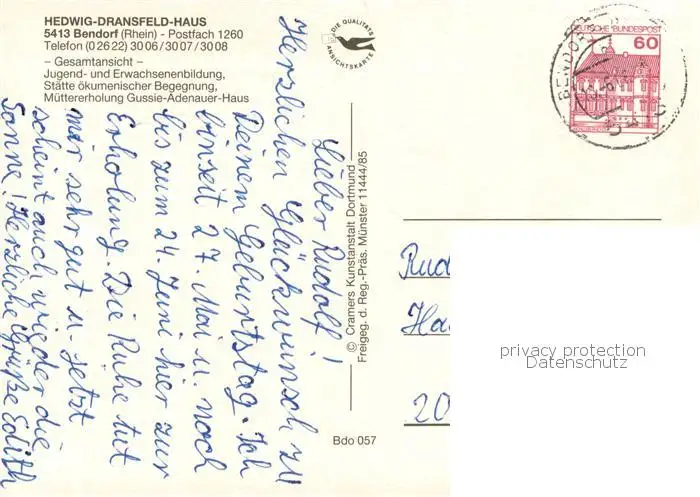 HEDWIG-DRANSFELD-HAUS
5413 Bendorf (Rhein) - Postfach 1260
Telefon (0 26 22) 30 06 / 30 07 / 30 08
– Gesamtansicht –
Jugend- und Erwachsenenbildung,
Stätte ökumenischer Begegnung,
Müttererholung Gussie-Adenauer-Haus
DIE QUALITÄTS
ANSICHTSKARTE
DEUTSCHE BUNDESPOST
60
BENDORF
Lieber Rudolf!
Herzlichen Glückwunsch zu
Deinem Geburtstag. Ich
bin seit 27. Mai u. noch
bis zum 24. Juni hier zur
Erholung. Die Ruhe tut
mir sehr gut u. jetzt
scheint auch wieder die
Sonne! Herzliche Grüße Edith
© Cramers Kunstanstalt Dortmund
Freigeg. d. Reg.-Präs. Münster 11444/85
Bdo 057
Rud
Ha
20
privacy protection
Datenschutz